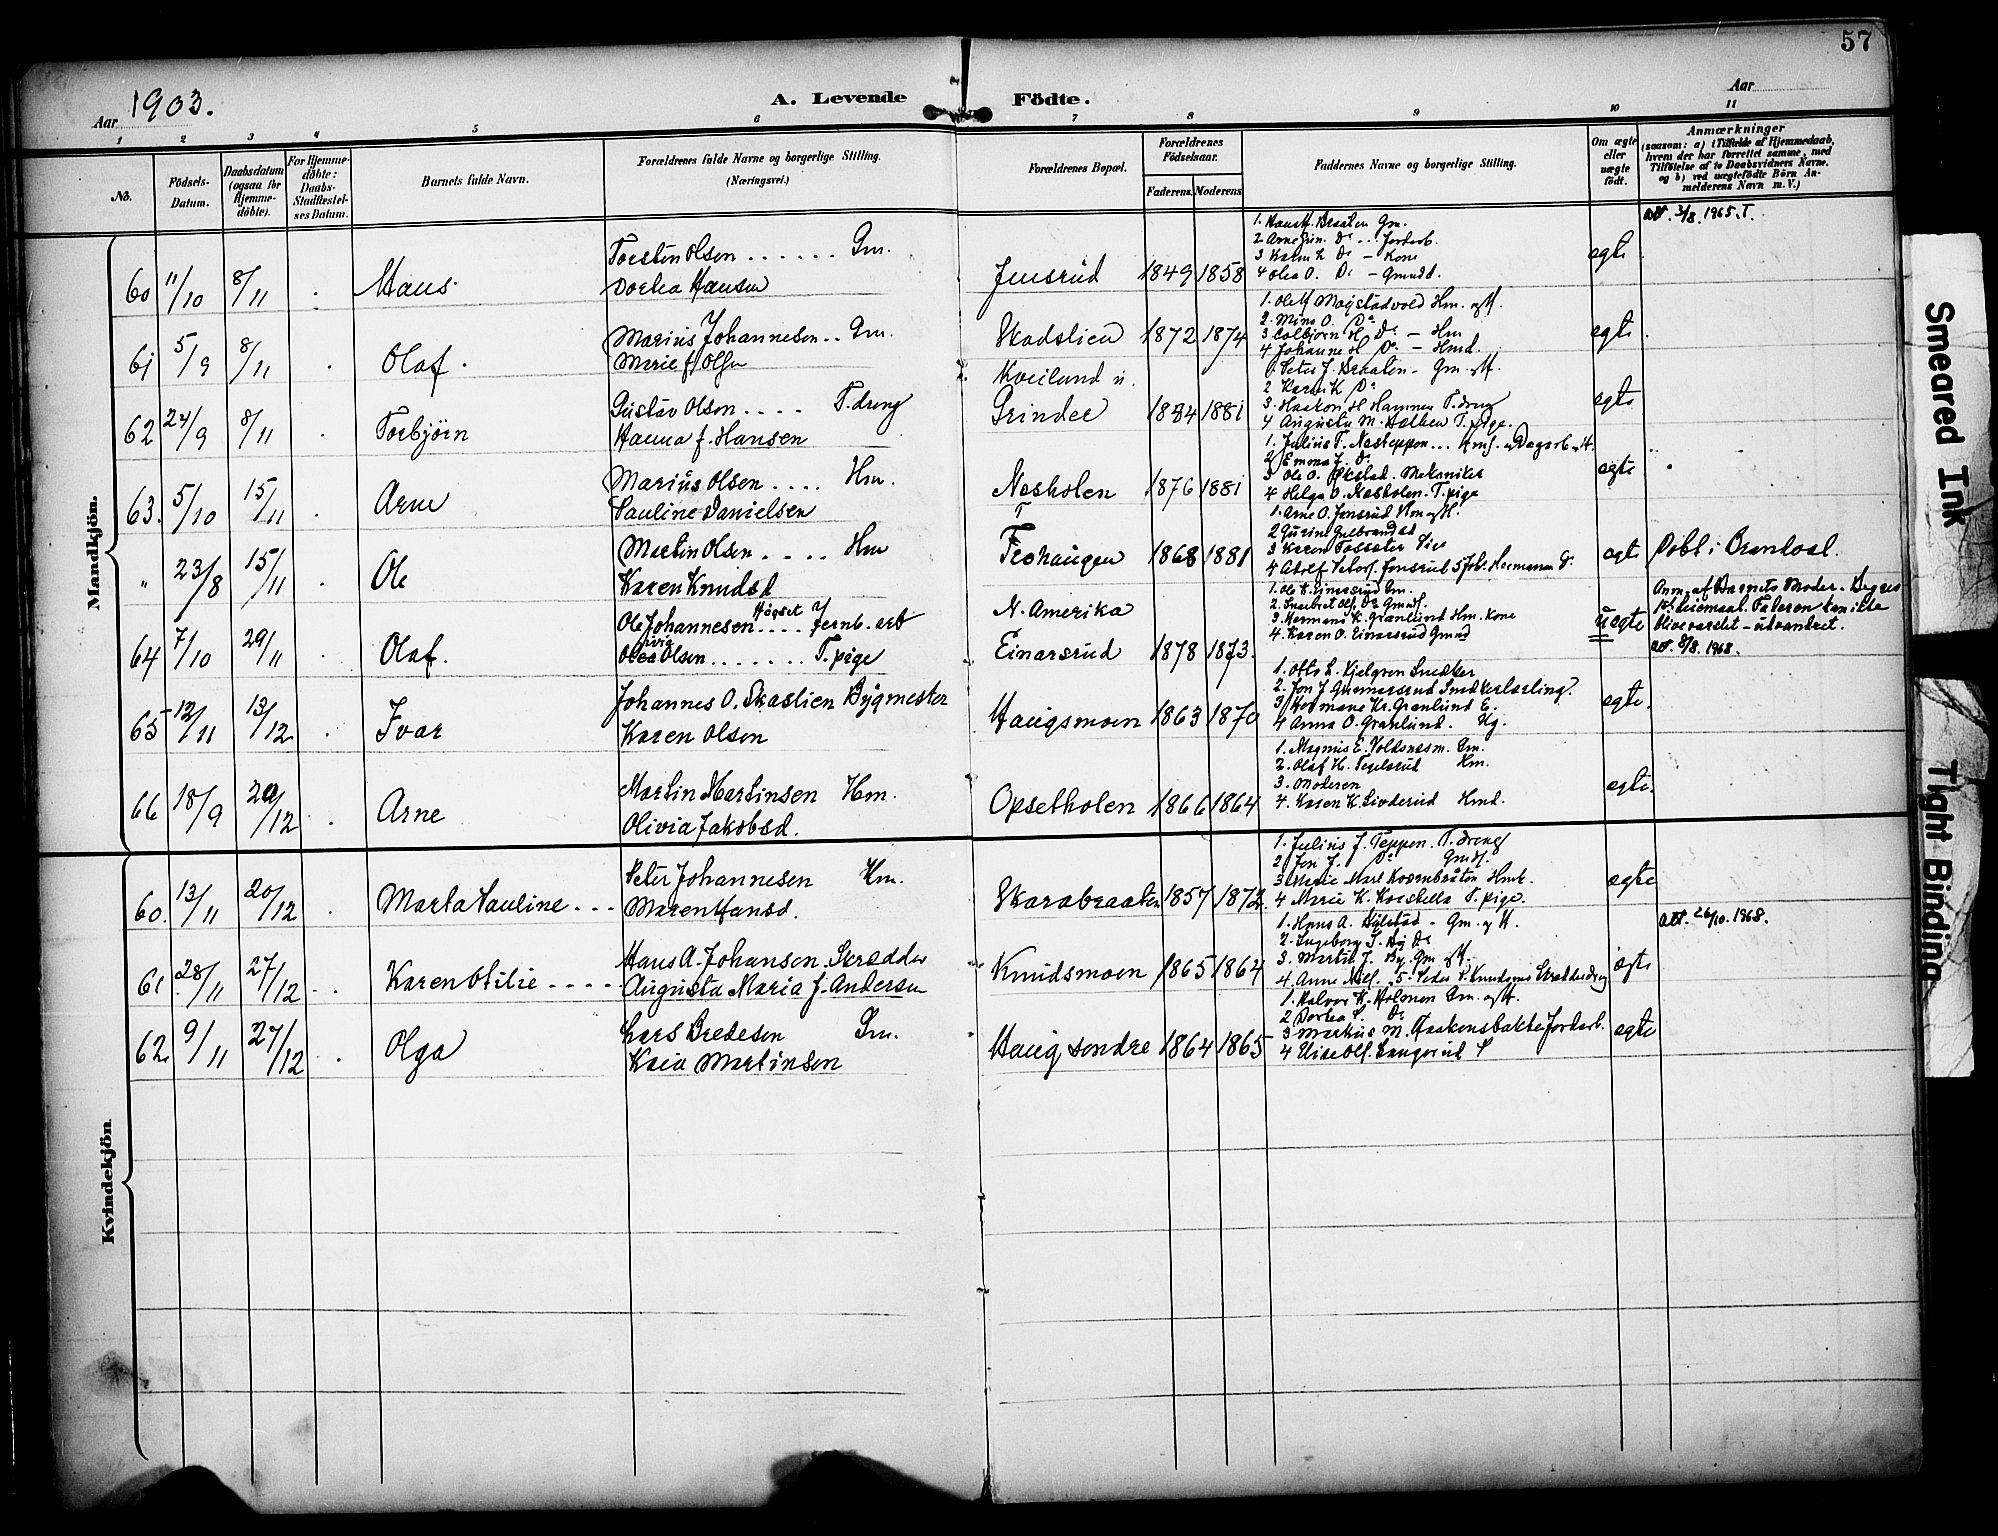 57
Aar 1903.
A. Levende Födte.
Aar
1 2 3 4 5 6 7 8 9 10 11
No.
Födsels-Datum.
Daabsdatum (ogsaa for Hjemmedöbte).
For Hjemmedöbte: Daabs-Stadfæstelses Datum.
Barnets fulde Navn.
Forældrenes fulde Navne og borgerlige Stilling. (Næringsvei.)
Forældrenes Bopæl.
Forældrenes Födselsaar.
Faderens. Moderens.
Faddernes Navne og borgerlige Stilling.
Om ægte eller uægte födt.
Anmærkninger
(saasom: a) i Tilfælde af Hjemmedaab, hvem der har forrettet samme, med Tilföielse af to Daabsvidners Navne, og b) ved uægtefödte Börn Anmelderens Navn m. V.)
Mandkjön.
60 11/10 8/11 Hans. Torsten Olsen Gm. Jensrud 1849 1858 ægte att. 3/8. 1965. T.
Dortea Hansen
1. Hans H. Braaten Gm.
2 Arne Gun. Do Jordarb.
3 Karen L. Do - Kone
4 Olea O. Do - Gmdd.
61 5/9 8/11 Olaf. Marius Johannesen Gm. Stadslien 1872 1874 ægte
Marie f. Olsen
1. Ole H Magstadvold Hm. og H.
2. Mina O. Do
3 Colbjørn H Do - Hm
4 Johanne H Do - Hmd.
62 24/9 8/11 Torbjörn Gustav Olsen T. dreng Kveilund u. Grindee 1884 1881 ægte
Hanna f. Hansen
1. Peter J. Braaten - Gm. og H.
2 Karen K Do
3. Haakon H Hammen T. dreng
4 Augusta M. T. pige.
63. 5/10 15/11 Arne Marius Olsen Hm. Nesholen 1876 1881 ægte
Pauline Danielsen
1. Julius T. Nesteppen Dagarb. og H.
2 Emma J. Do
3 Ole O. Mekaniker
4 Helga O. Nesholen. T. pige
" 23/8 15/11 Ole Martin Olsen Hm 1868 1881 ægte Döbt i
Karen Knudsd
1. Arne O. Jensrud Hm og H.
2 Gurine Gulbrandsd
3 Karen
4 Adolf
64 7/10 29/11 Olaf. Ole Johannesen Högset Jernb. arb N. Amerika uægte
Olea Olsen T. pige Einarsrud 1878 1873.
1. Ole E. Einarsrud Gm.
2. Do Gmds.
3. Hermana K. Granlund Hm. Kone
4. Karen O. Einarsrud Gmd
Anm. af Barnets Moder. Begges
1ste Leiermaal. Faderen kan ikke
blive varslet - udvandret.
att. 8/8. 1968.
65 12/11 13/12 Ivar Johannes O. Skaslien Bygmester Haugsmoen 1863 1870 ægte
Karen Olsen
1. Otto L. Kjelgren Snedker
2. Jon J. Gunnarsrud Snedkerlærling
3 Hermane Kr. Granlund E.
4 Anna O. Granlund. Ug.
66 18/9 20/12 Arne Martin Martinsen Hm. Opsetholen 1866 1864 ægte
Olivia Jakobsd.
1. Magnus E. Gm.
2. Olaf H. Hm.
3. Moderen
4. Karen K. Hmd.
Kvindekjön.
60. 13/11 20/12 Marta Pauline Peter Johannesen Hm. Skarabraaten 1857 1872 ægte
Maren Hansd.
1. Julius J. Teppen. T. dreng
2 Jon J. Do Gmds.
3 Marie Mart.
4 Marie K. T. pige.
61 28/11 27/12 Karen Otilie Hans A. Johansen Skrædder Knudsmoen 1865 1864 ægte att. 26/10. 1968.
Augusta Maria f. Andersen
1. Hans A. - Gm. og H.
2. Ingeborg Do
3. Martin J. By. Gm og H.
4. Anne 5 Peder P. Knudsmoen Skræddersdreng
62 9/11 27/12 Olga Lars Bredesen Gm. Haug söndre 1864 1865 ægte
Kaia Martinsen
1. Halvor K. Holmen Gm. og H.
2 Dortea Do
3 Markus M. Haakensbakke Jordarb.
4 Elise
Smeared Ink
Tight Binding